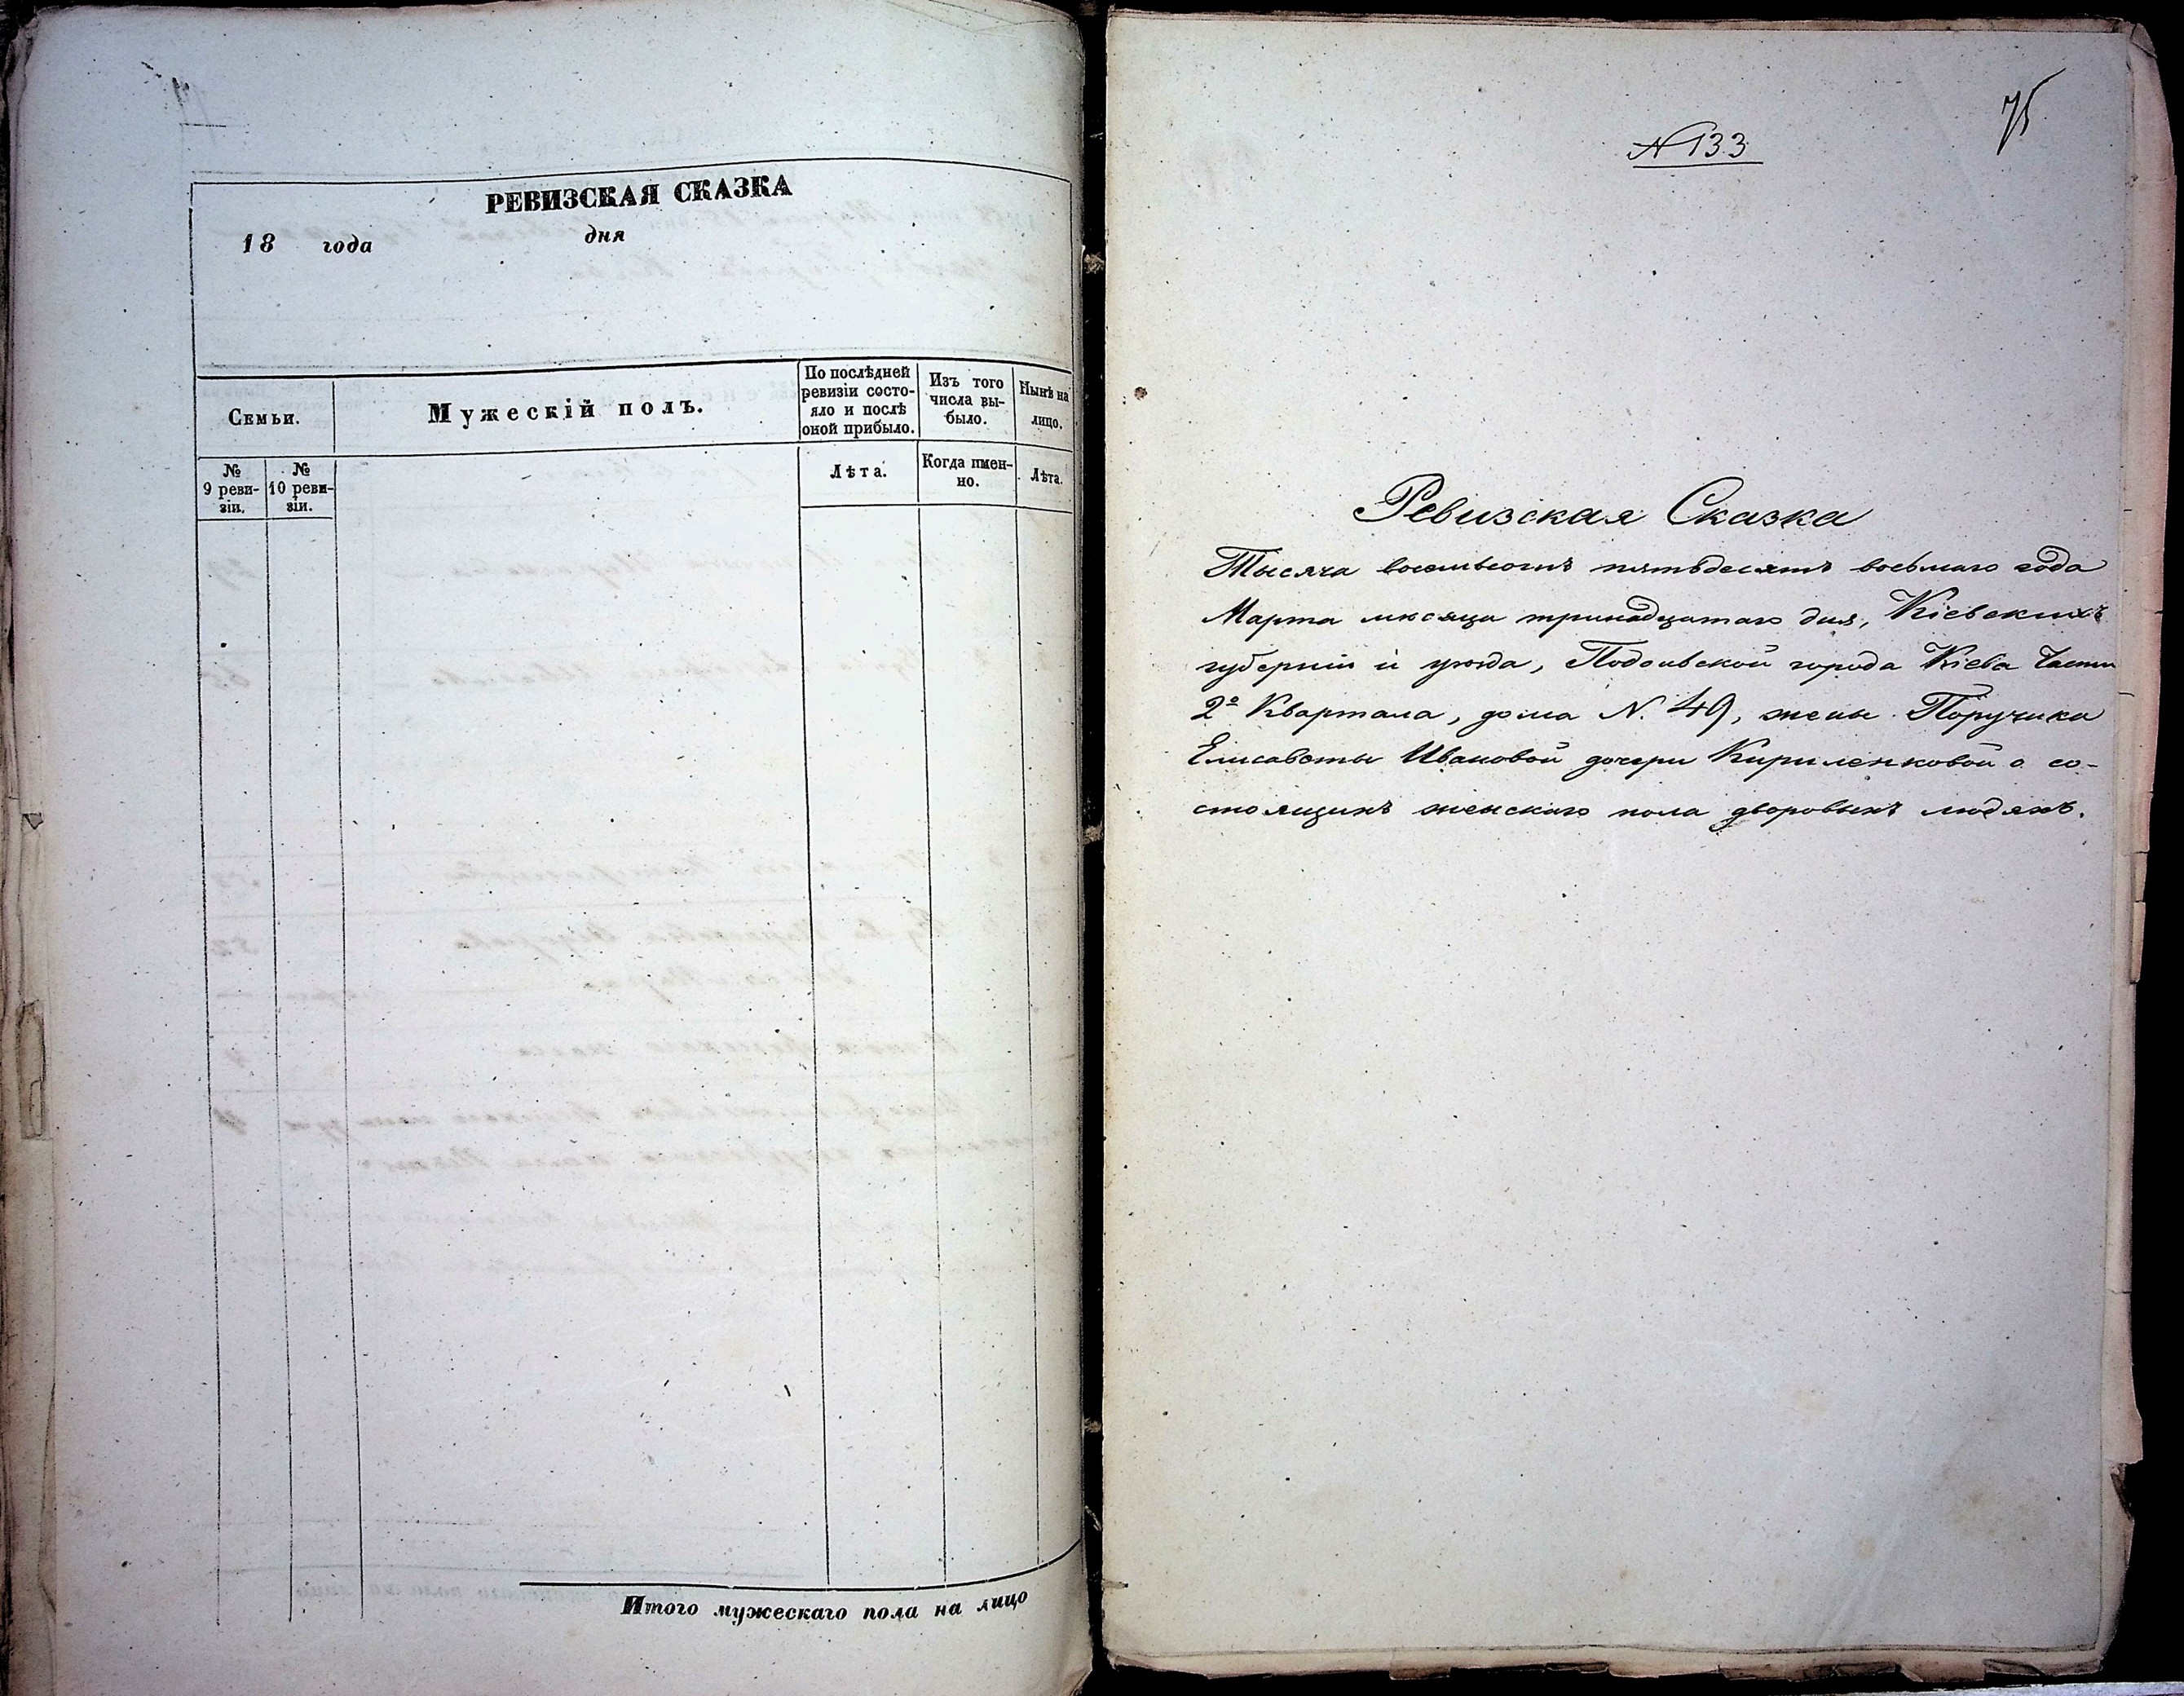 РЕВИЗСКАЯ СКАЗКА
18 года дня
Семьи.
Мужескій полъ.
По послѣдней
ревизіи состо-
яло и послѣ
оной прибыло.
Изъ того
числа вы-
было.
Нынѣ на
лицо.
№
9 реви-
зіи.
№
10 реви-
зіи.
Лѣта.
Когда имен-
но.
Лѣта.
Итого мужескаго пола на лицо
75
№ 133
Ревизская Сказка
Тысяча восемьсотъ пятьдесятъ восьмаго года
Марта мѣсяца тринадцатаго дня, Кіевскихъ
губерніи и уѣзда, Подольской города Кіева Части
2º Квартала, дома N. 49, жены Поручика
Елисаветы Ивановой дочери Кириленковой о со-
стоящихъ женскаго пола дворовыхъ людяхъ.